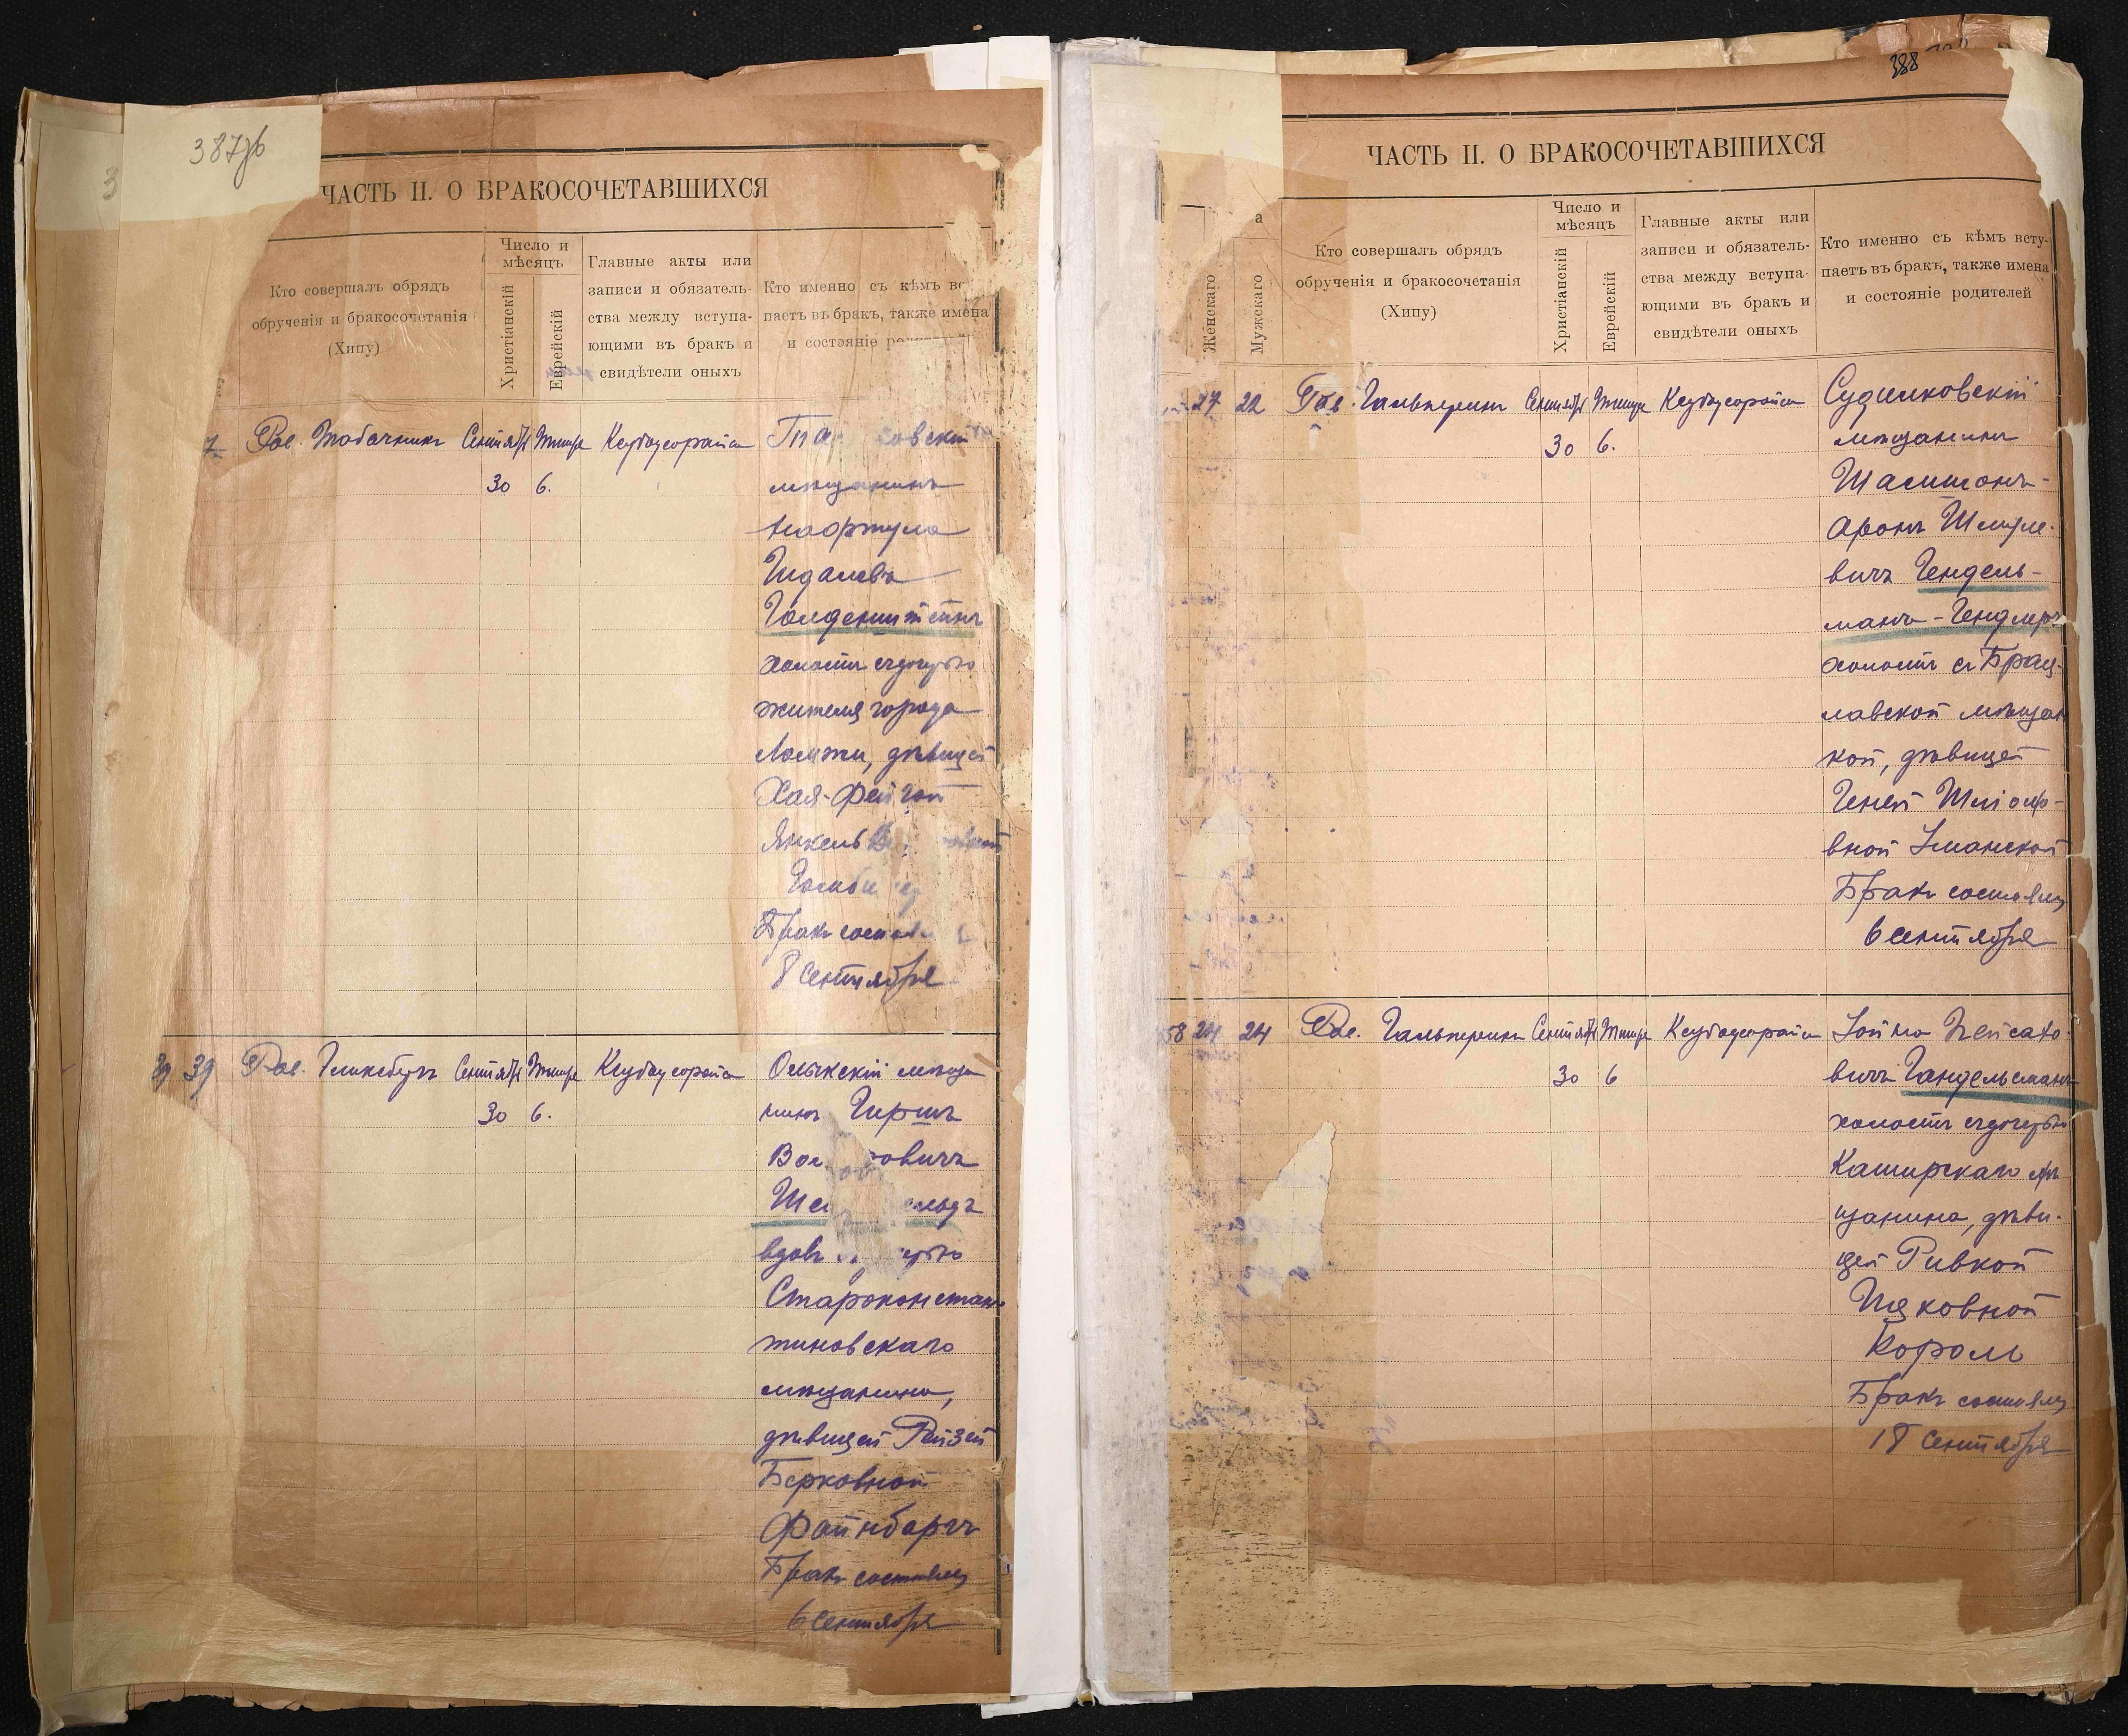 387об
ЧАСТЬ II. О БРАКОСОЧЕТАВШИХСЯ
Кто совершалъ обрядъ
обрученія и бракосочетанія
(Хипу)
Число и
мѣсяцъ
Христіанскій
Еврейскій
Главные акты или
записи и обязатель-
ства между вступа-
ющими въ бракъ и
свидѣтели оныхъ
Кто именно съ кѣмъ
паетъ въ бракъ, также имена
и состояніе
Рав. Табачникъ
Сентябр
30
Тишре
6.
Ксубусорайса
мѣщанинъ
Нафтула
Гидалевъ
Голденштейнъ
холостъ съ дочерью
жителя города
Ломжи, дѣвицей
Хая-Фейгой
Бракъ
8 Сентября
39
Рав. Гликсбергъ
Сентябр
30
Тишре
6.
Ксубусорайса
Олыкскій мѣща
нинъ Гиршъ
Староконстан-
тиновскаго
мѣщанина,
дѣвицей Рейзей
Берковной
Файнбаргъ
Бракъ состоялся
6 Сентября
388
ЧАСТЬ II. О БРАКОСОЧЕТАВШИХСЯ
Женскаго
Мужскаго
Кто совершалъ обрядъ
обрученія и бракосочетанія
(Хипу)
Число и
мѣсяцъ
Христіанскій
Еврейскій
Главные акты или
записи и обязатель-
ства между вступа-
ющими въ бракъ и
свидѣтели оныхъ
Кто именно съ кѣмъ всту-
паетъ въ бракъ, также имена
и состояніе родителей
27
22
Рав. Гальперинъ
Сентябр
30
Тишре
6.
Ксубусорайса
Судилковскій
мѣщанинъ
Шлимонъ-
Аронъ Шмуле-
вичъ Гендель-
манъ-Гендлеръ
холостъ съ Брац-
лавской мѣщан
кой, дѣвицей
Геней Шліомо-
вной Уманской
Бракъ состоялся
6 Сентября
58
24
24
Рав. Гальперинъ
Сентябр
30
Тишре
6
Ксубусорайса
Іойна Пейсахо-
вичъ Гандельсманъ
холостъ съ дочерью
Каширскаго мѣ
щанина, дѣви-
цей Ривкой
Ицковной
Король
Бракъ состоялся
18 Сентября